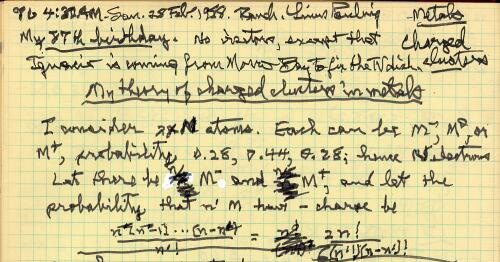 4:30 AM. Sun. 28 Feb. 1988. Ranch. Linus Pauling Metals
My 87th birthday. No visitors, except that Charged
Ignacio is coming from Morro Bay to fix the TV dish. clusters
My theory of charged clusters in metals
I consider M atoms. Each can be M⁻, M⁰, or
M⁺, probability 0.28, 0.44, 0.28; hence electrons
Let there be M⁻ and M⁺, and let the
probability that n' M have - charge be
n'! = 2n! (n'!)(n-n')!